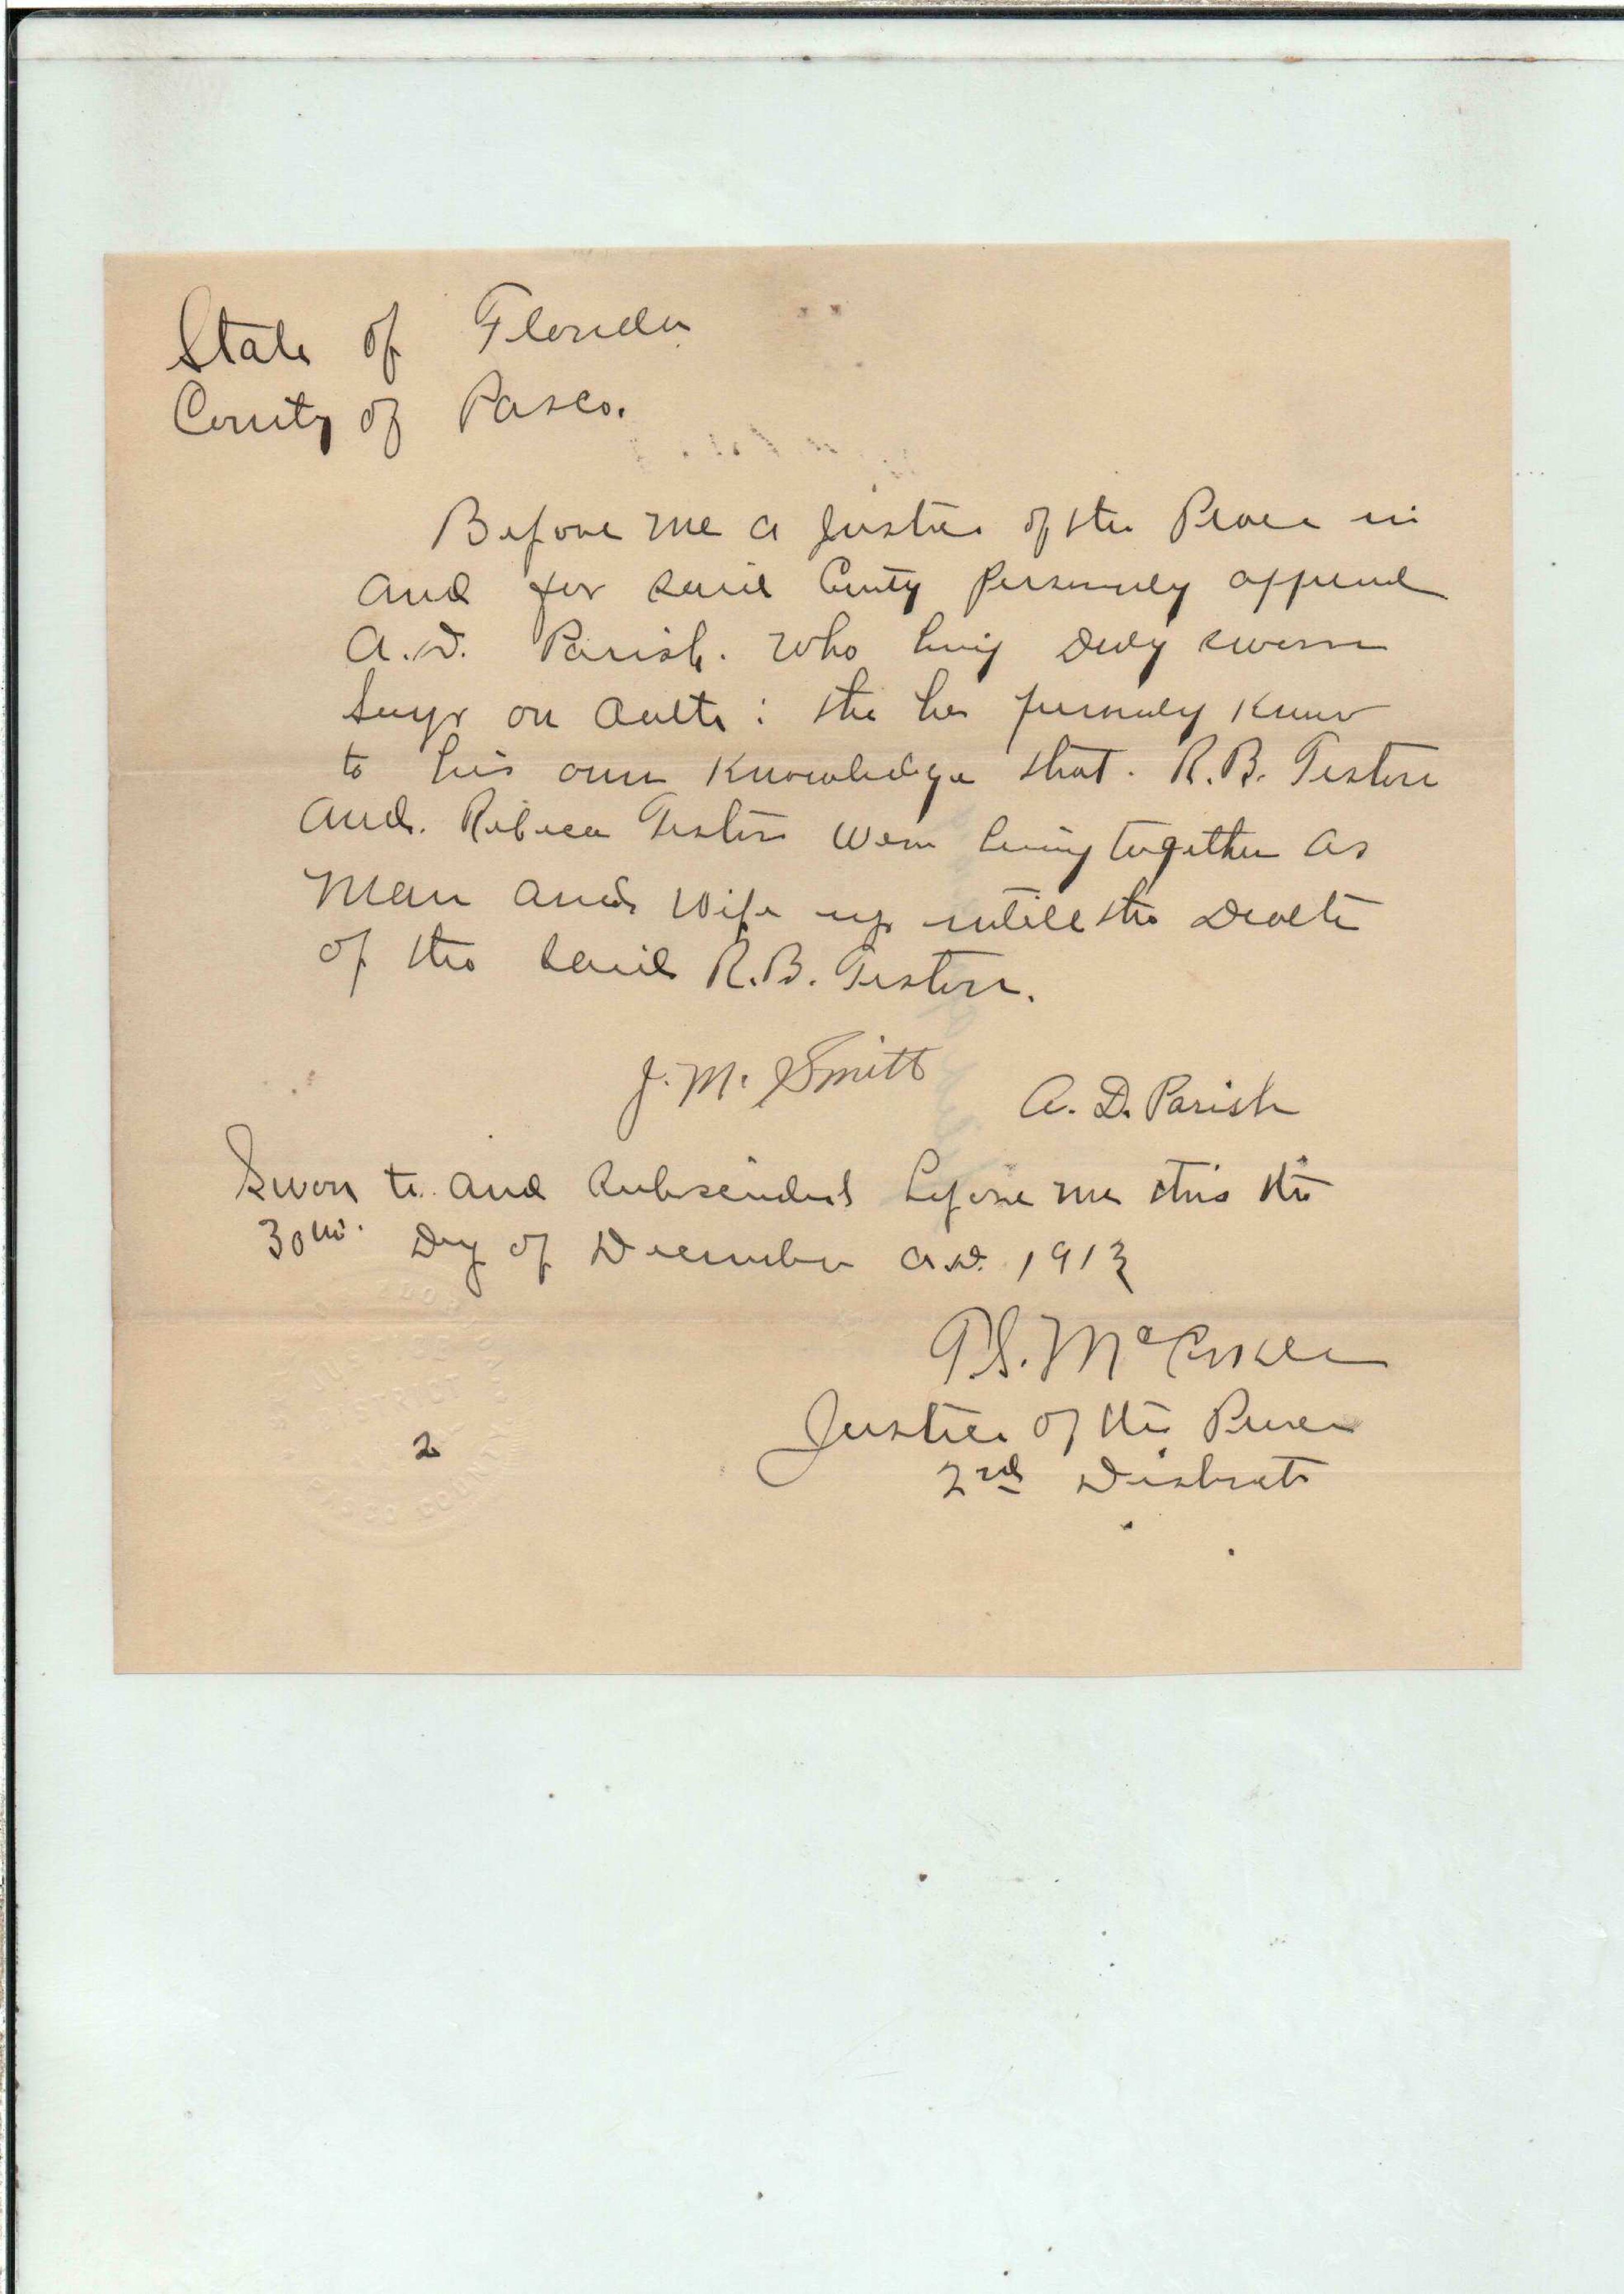 State of Florida
County of Pasco.
Before me a Justice of the Peace in
and for said County Personaly appeared
A.D. Parish. Who being Duly sworn
Says on Oath: the he personaly Know
to his own Knowledge that. R.B. Teston
and. Rebeca Teston were living together as
Man and Wife up untill the Death
of the said R.B. Teston.
J. M. Smith
A. D. Parish
Sworn to and Subscribed before me this the
30th. Day of December A.D. 1913
Justice of the Peace
2nd District
DISTRICT
COUNTY
2